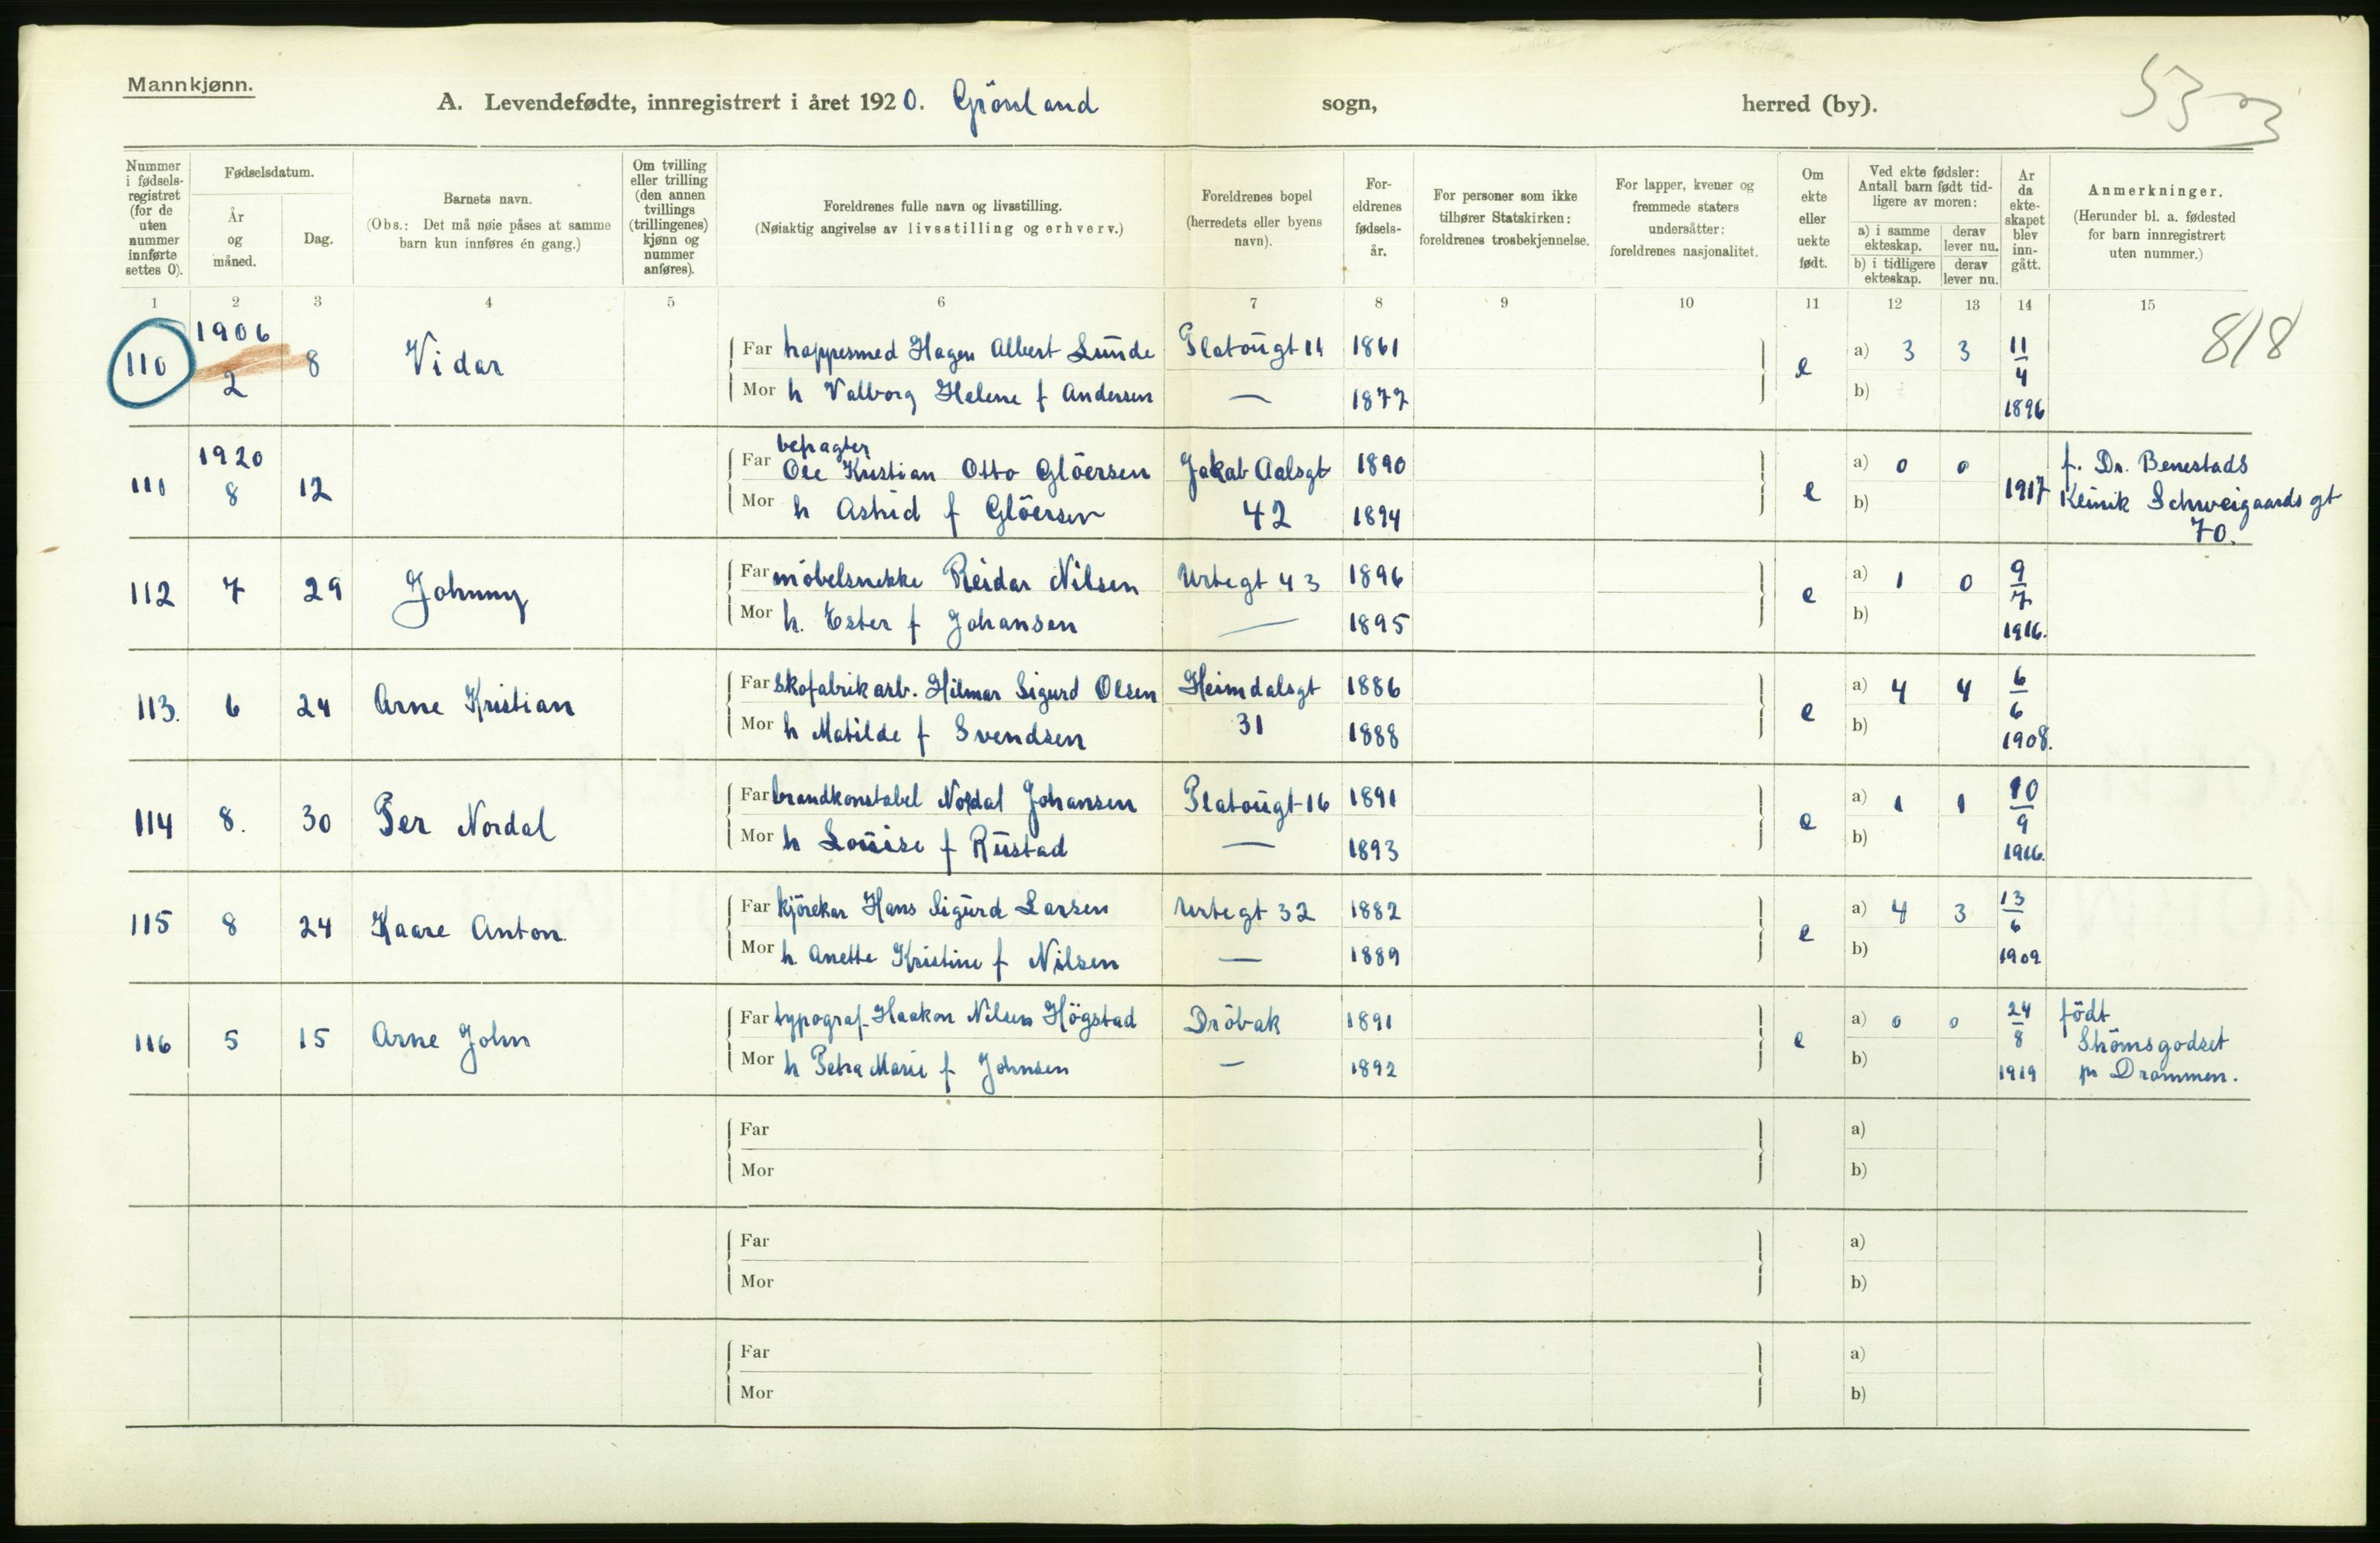 Mannkjønn.
A. Levendefødte, innregistrert i året 1920. Grönland sogn, herred (by).
53
Nummer i fødsels-registret (for de uten nummer innførte settes 0).
Fødselsdatum.
År og måned.
Dag.
Barnets navn.
(Obs.: Det må nøie påses at samme barn kun innføres én gang.)
Om tvilling eller trilling (den annen tvillings (trillingenes) kjønn og nummer anføres).
Foreldrenes fulle navn og livsstilling.
(Nøiaktig angivelse av livsstilling og erhverv.)
Foreldrenes bopel
(herredets eller byens navn).
For-eldrenes fødsels-år.
For personer som ikke tilhører Statskirken: foreldrenes trosbekjennelse.
For lapper, kvener og fremmede staters undersåtter: foreldrenes nasjonalitet.
Om ekte eller uekte født.
Ved ekte fødsler: Antall barn født tid-ligere av moren:
a) i samme ekteskap.
derav lever nu.
b) i tidligere ekteskap.
derav lever nu.
År da ekte-skapet blev inn-gått.
Anmerkninger.
(Herunder bl. a. fødested for barn innregistrert uten nummer.)
1 2 3 4 5 6 7 8 9 10 11 12 13 14 15
818
110 1906 2 8 Vidar
Far trappesmed Hagen Albert Lunde Platougt 14 1861
e a) 3 3 11/4 1896
Mor h Valborg Helene f Andersen — 1877
b)
111 1920 8 12
Far befragter Ole Kristian Otto Glöersen Jakob Aalsgt 1890
e a) 0 0 1917 f. Dr. Benestads
Mor h Astrid f Glöersen 42 1894
b) Klinik Schweigaards gt
70.
112 7 29 Johnny
Far möbelsnekke Reidar Nilsen Urtegt 43 1896
e a) 1 0 9/7 1916.
Mor h. Ester f Johansen — 1895
b)
113. 6 24 Arne Kristian
Far Skofabrikarb. Hilmar Sigurd Olsen Heimdalsgt 1886
e a) 4 4 6/6 1908.
Mor h Matilde f Svendsen 31 1888
b)
114 8. 30 Per Nordal
Far brandkonstabel Nordal Johansen Platougt 16 1891
e a) 1 1 10/9 1916.
Mor h Louise f Rustad — 1893
b)
115 8 24 Kaare Anton.
Far kjörekar Hans Sigurd Larsen Urtegt 32 1882
e a) 4 3 13/6 1909
Mor h Anette Kristine f Nilsen — 1889
b)
116 5 15 Arne John
Far typograf Haakon Nilsen Högstad Dröbak 1891
e a) 0 0 24/8 1919 födt
Mor h Petra Marie f Johnsen — 1892
b) Strömsgodset
pr Drammen.
Far a)
Mor b)
Far a)
Mor b)
Far a)
Mor b)